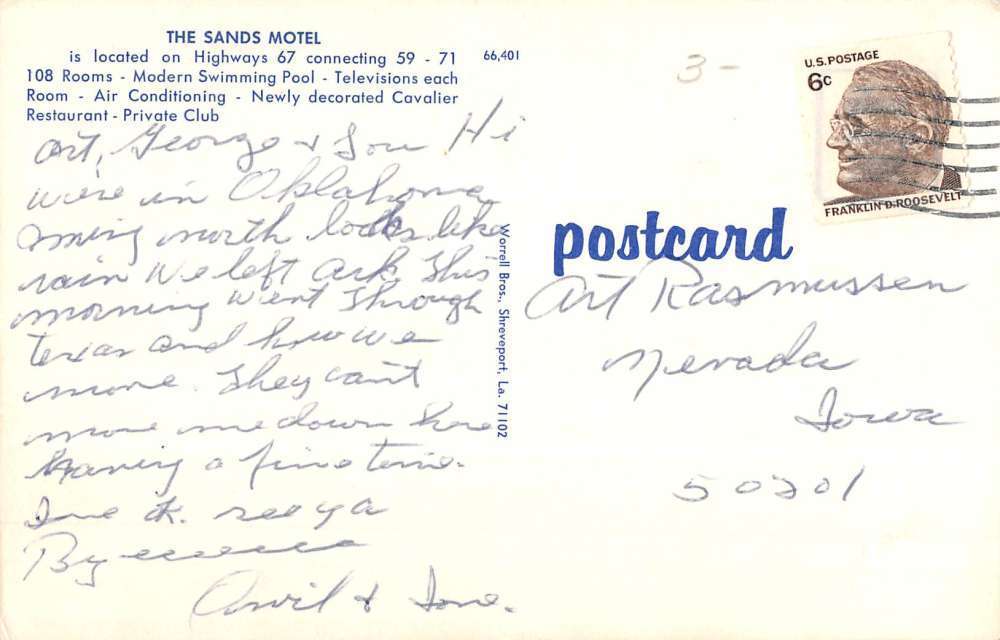 THE SANDS MOTEL
is located on Highways 67 connecting 59 - 71
108 Rooms - Modern Swimming Pool - Televisions each
Room - Air Conditioning - Newly decorated Cavalier
Restaurant - Private Club
66,401
3 -
U.S. POSTAGE
6c
FRANKLIN D. ROOSEVELT
Art, George & Hi
we're in Oklahoma
going north looks like
rain We left Ark. this
morning went through
texas and how we
move. They can't
move me down here
Having a fine time.
ok. see ya
By
Orvil &
Worrell Bros., Shreveport, La. 71102
postcard
Art Rasmussen
Nevada
Iowa
50201